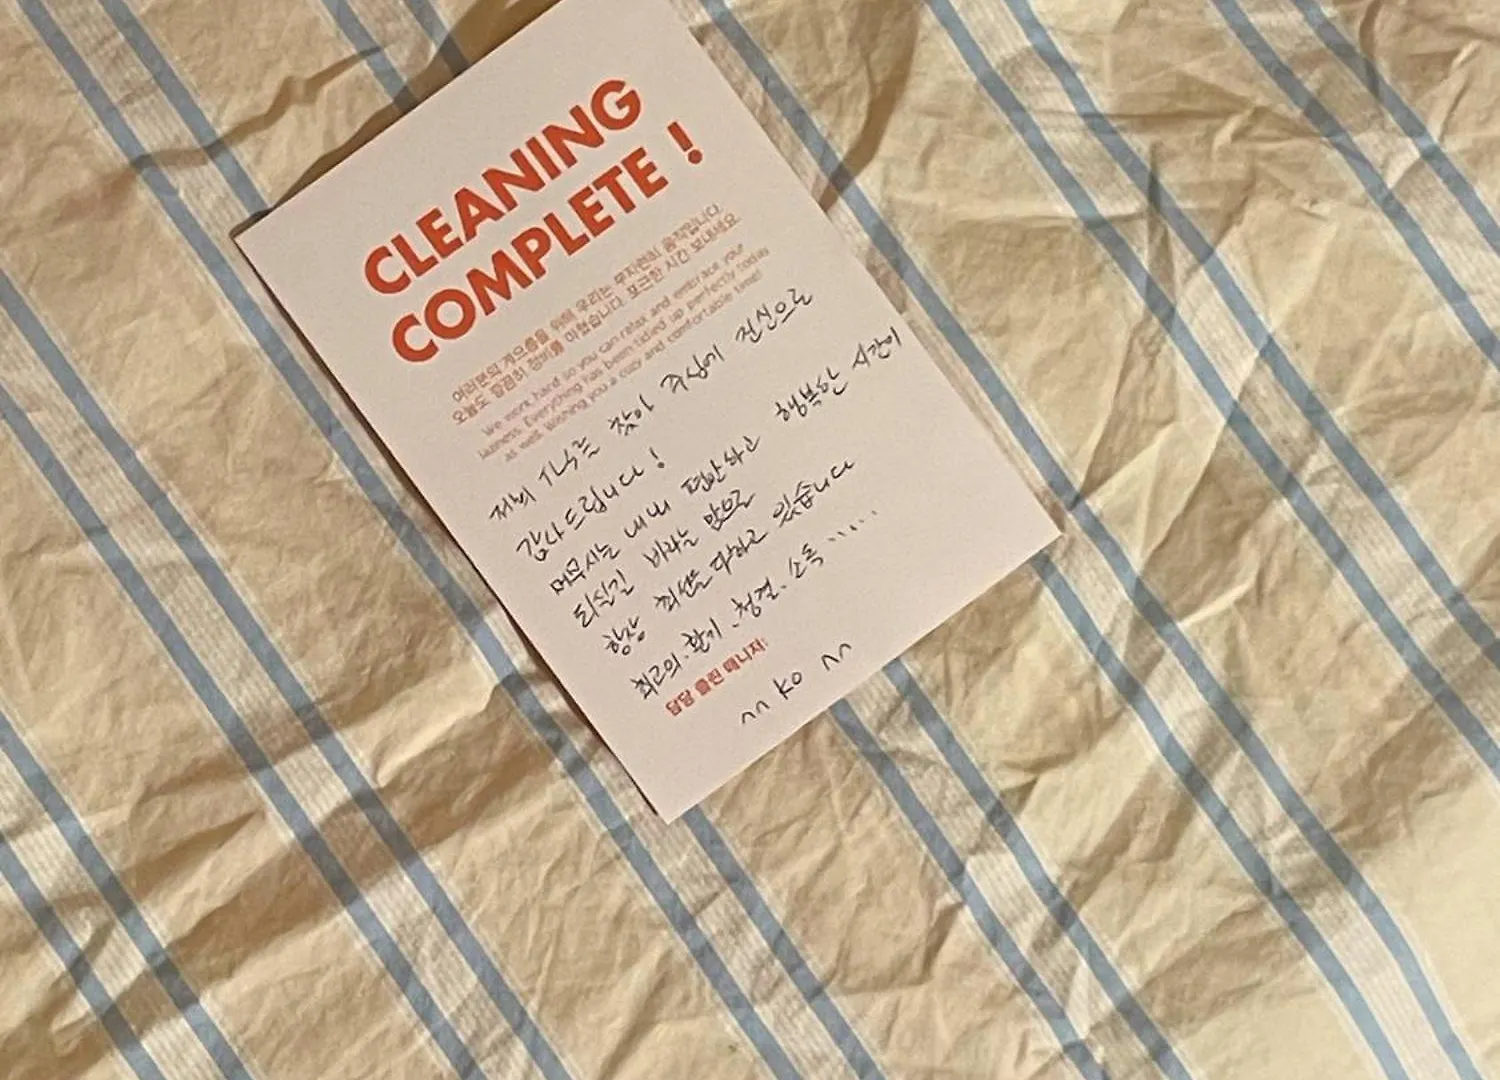 CLEANING
COMPLETE !
여러분의 게으름을 위해 우리는 부지런히 움직입니다.
오늘도 말끔히 정비를 마쳤습니다. 포근한 시간 보내세요.
We work hard so you can relax and embrace your
laziness. Everything has been tidied up perfectly today
as well. Wishing you a cozy and comfortable time!
저희 숙소를 찾아 주심에 진심으로
감사드립니다 !
머무시는 내내 편안하고 행복한 시간이
되시길 바라는 맘으로
항상 최선을 다하고 있습니다
최고의. 환기. 청결. 소독 ......
담당 클린 매니저:
^^ KO ^^